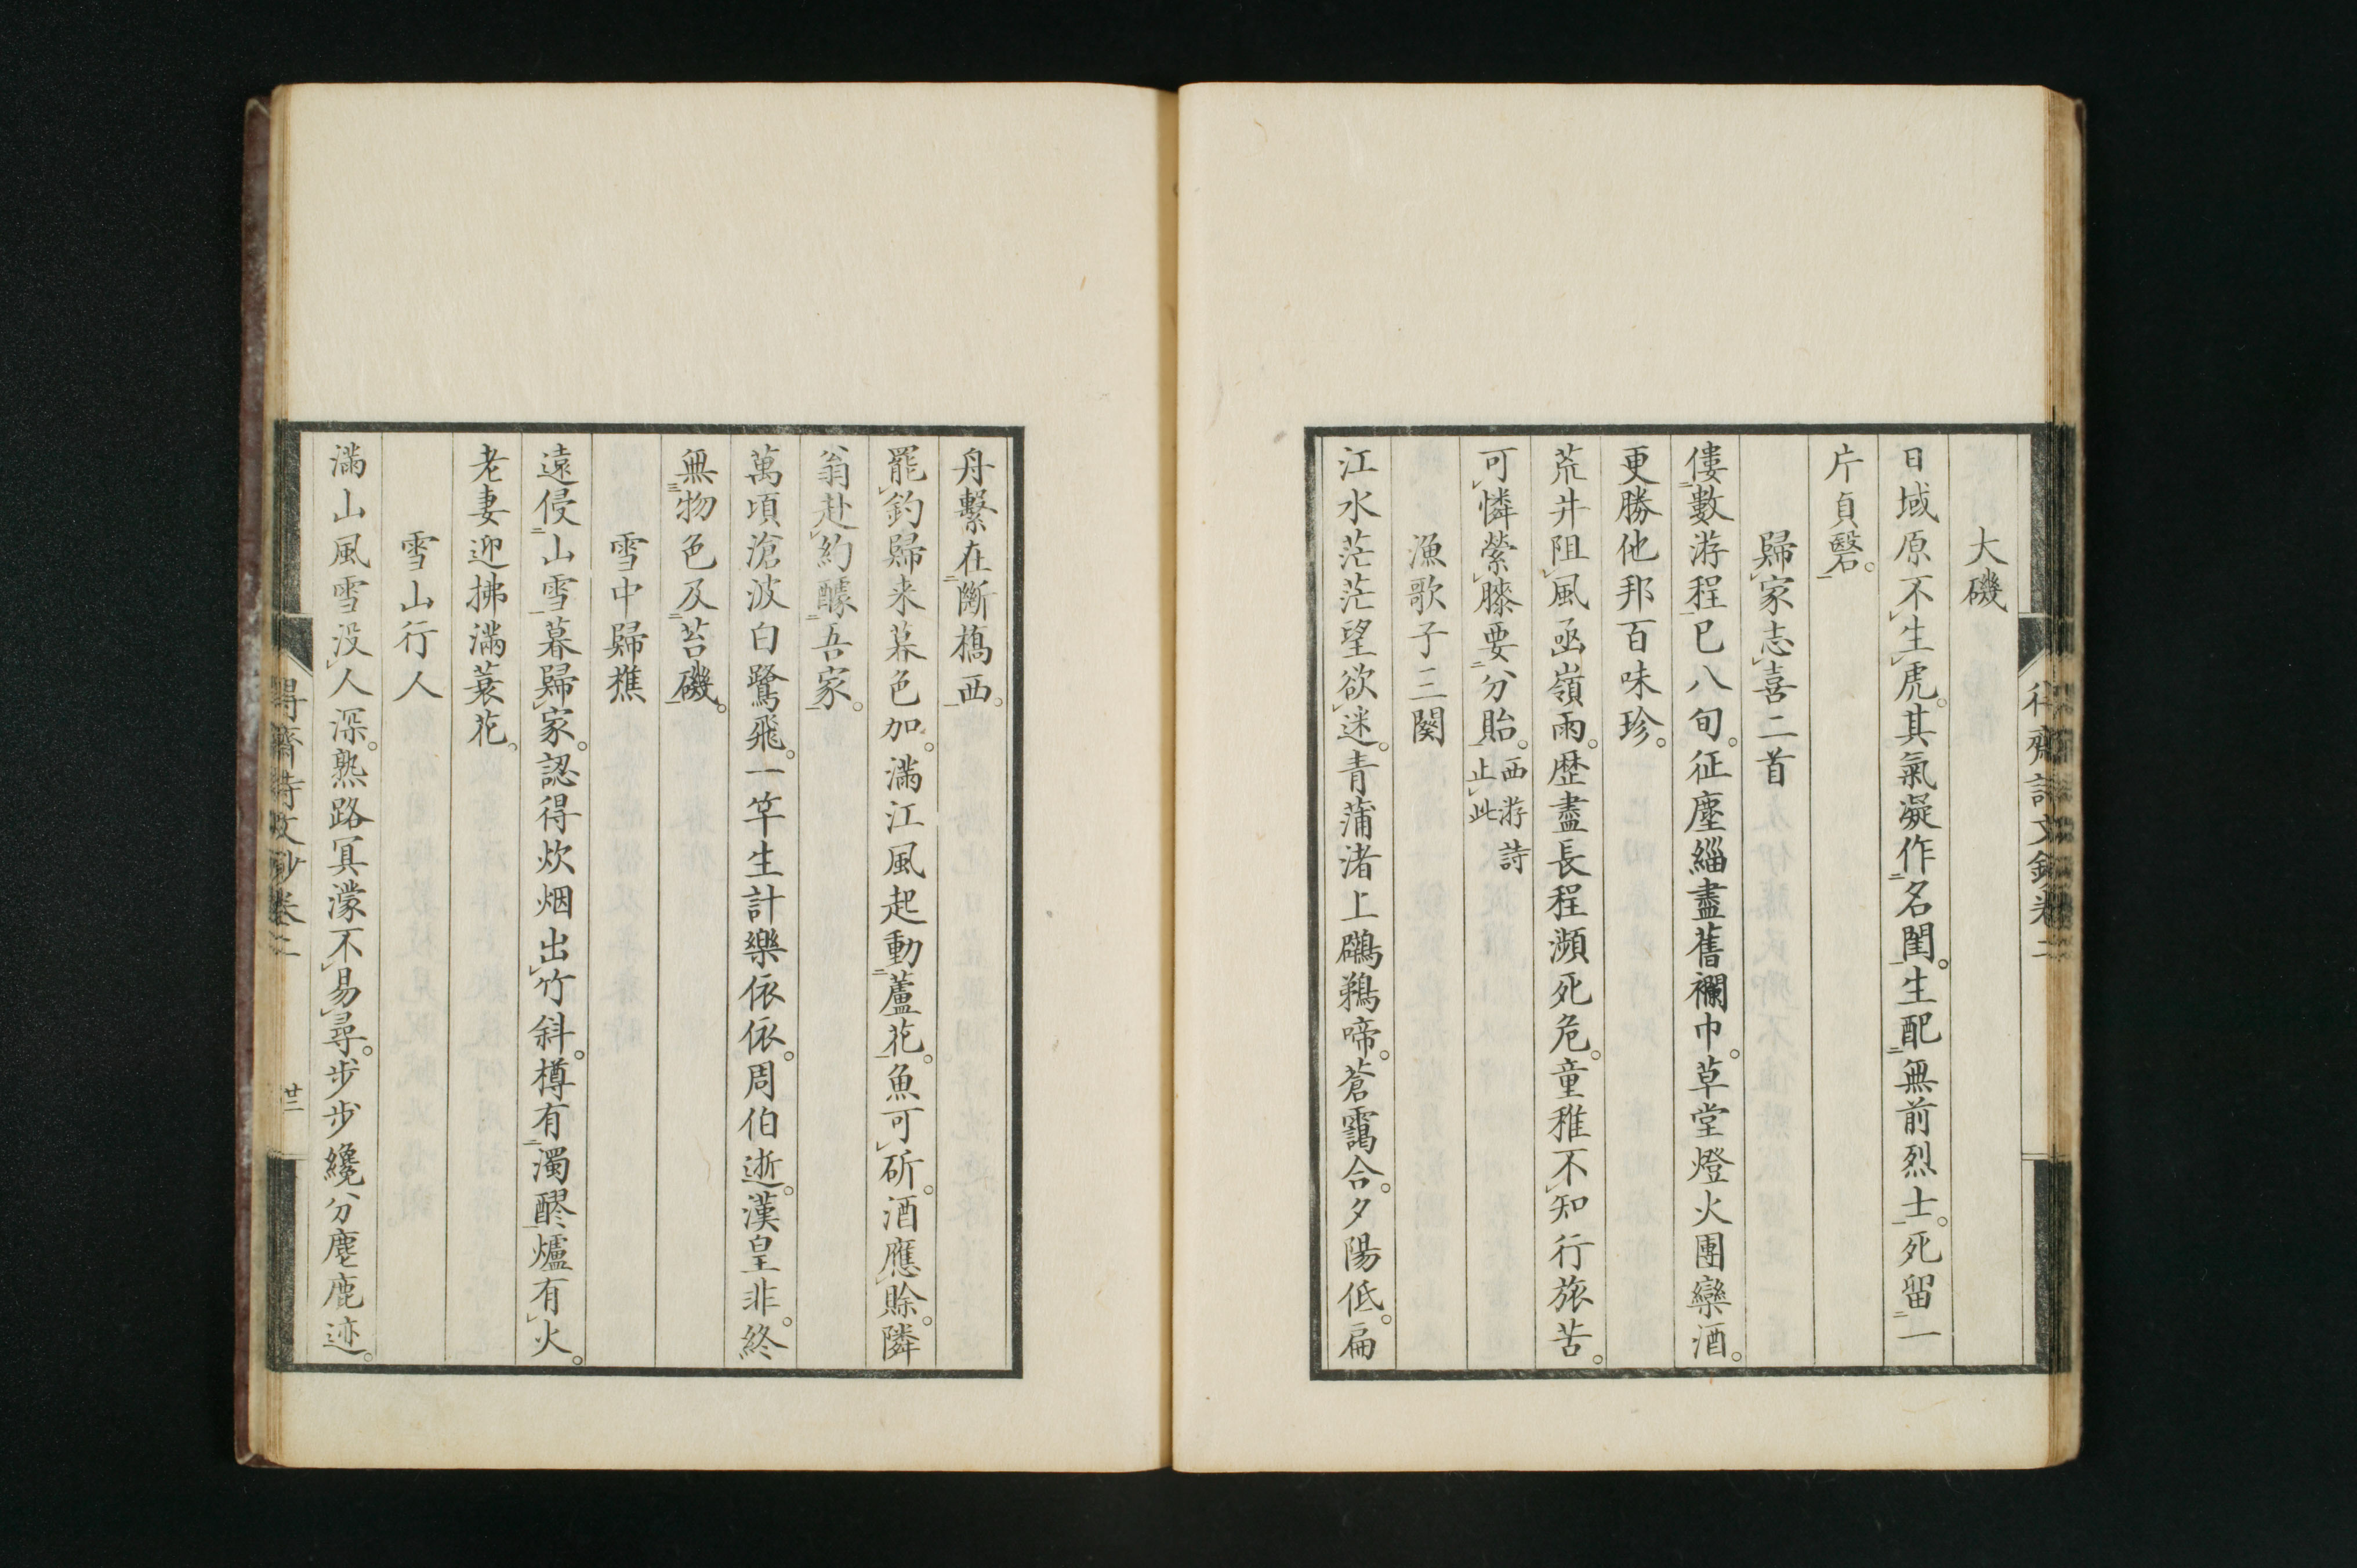 大磯
日域原不生虎。其氣凝作名閨。生配無前烈士。死留一
片貞瑿。
歸家志喜二首
僂數游程已八旬。征塵緇盡舊襴巾。草堂燈火團欒酒。
更勝他邦百味珍。
荒井阻風函嶺雨。歷盡長程瀕死危。童稚不知行旅苦。
可憐縈膝要分貽。西游詩止此
漁歌子三闋
江水茫茫望欲迷。青蒲渚上鸊鵜啼。蒼靄合。夕陽低。扁
舟繫在斷橋西。
罷釣歸来暮色加。滿江風起動蘆花。魚可斫。酒應賒。隣
翁赴約醵吾家。
萬頃滄波白鷺飛。一竿生計樂依依。周伯逝。漢皇非。終
無物色及苔磯。
雪中歸樵
遠侵山雪暮歸家。認得炊烟出竹斜。樽有濁醪爐有火。
老妻迎拂滿蓑花。
雪山行人
滿山風雪没人深。熟路冥濛不易尋。步步纔分麈鹿迹。
得齋詩文鈔卷二
廿三